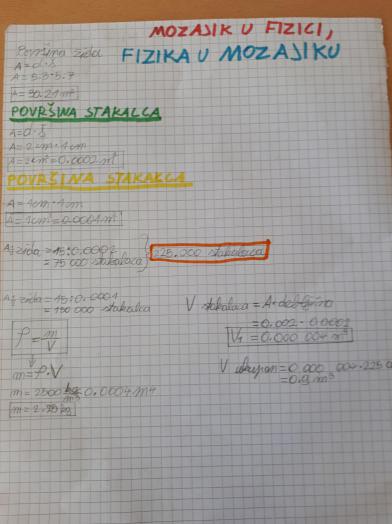 MOZAJIK U FIZICI,
FIZIKA U MOZAJIKU
Površina zida
A=d·š
A=5.3·5.7
A=30.21m²
POVRŠINA STAKALCA
A=d·š
A=2cm·1cm
A=2cm²=0.0002m²
POVRŠINA STAKALCA
A=1cm·1cm
A=1cm²=0.0001m²
zida =15:0.0002
=75 000 stakalaca
225.000 stakalaca
zida =15:0.0001
=150 000 stakalca
ρ=m/V
m=ρ·V
m=2500 kg/m³·
m=2.25kg
V stakalaca=A·debljina
=0.002·
V₁=0.000 004m³
V ukupan=0.000 004·225 0
=0.9m³